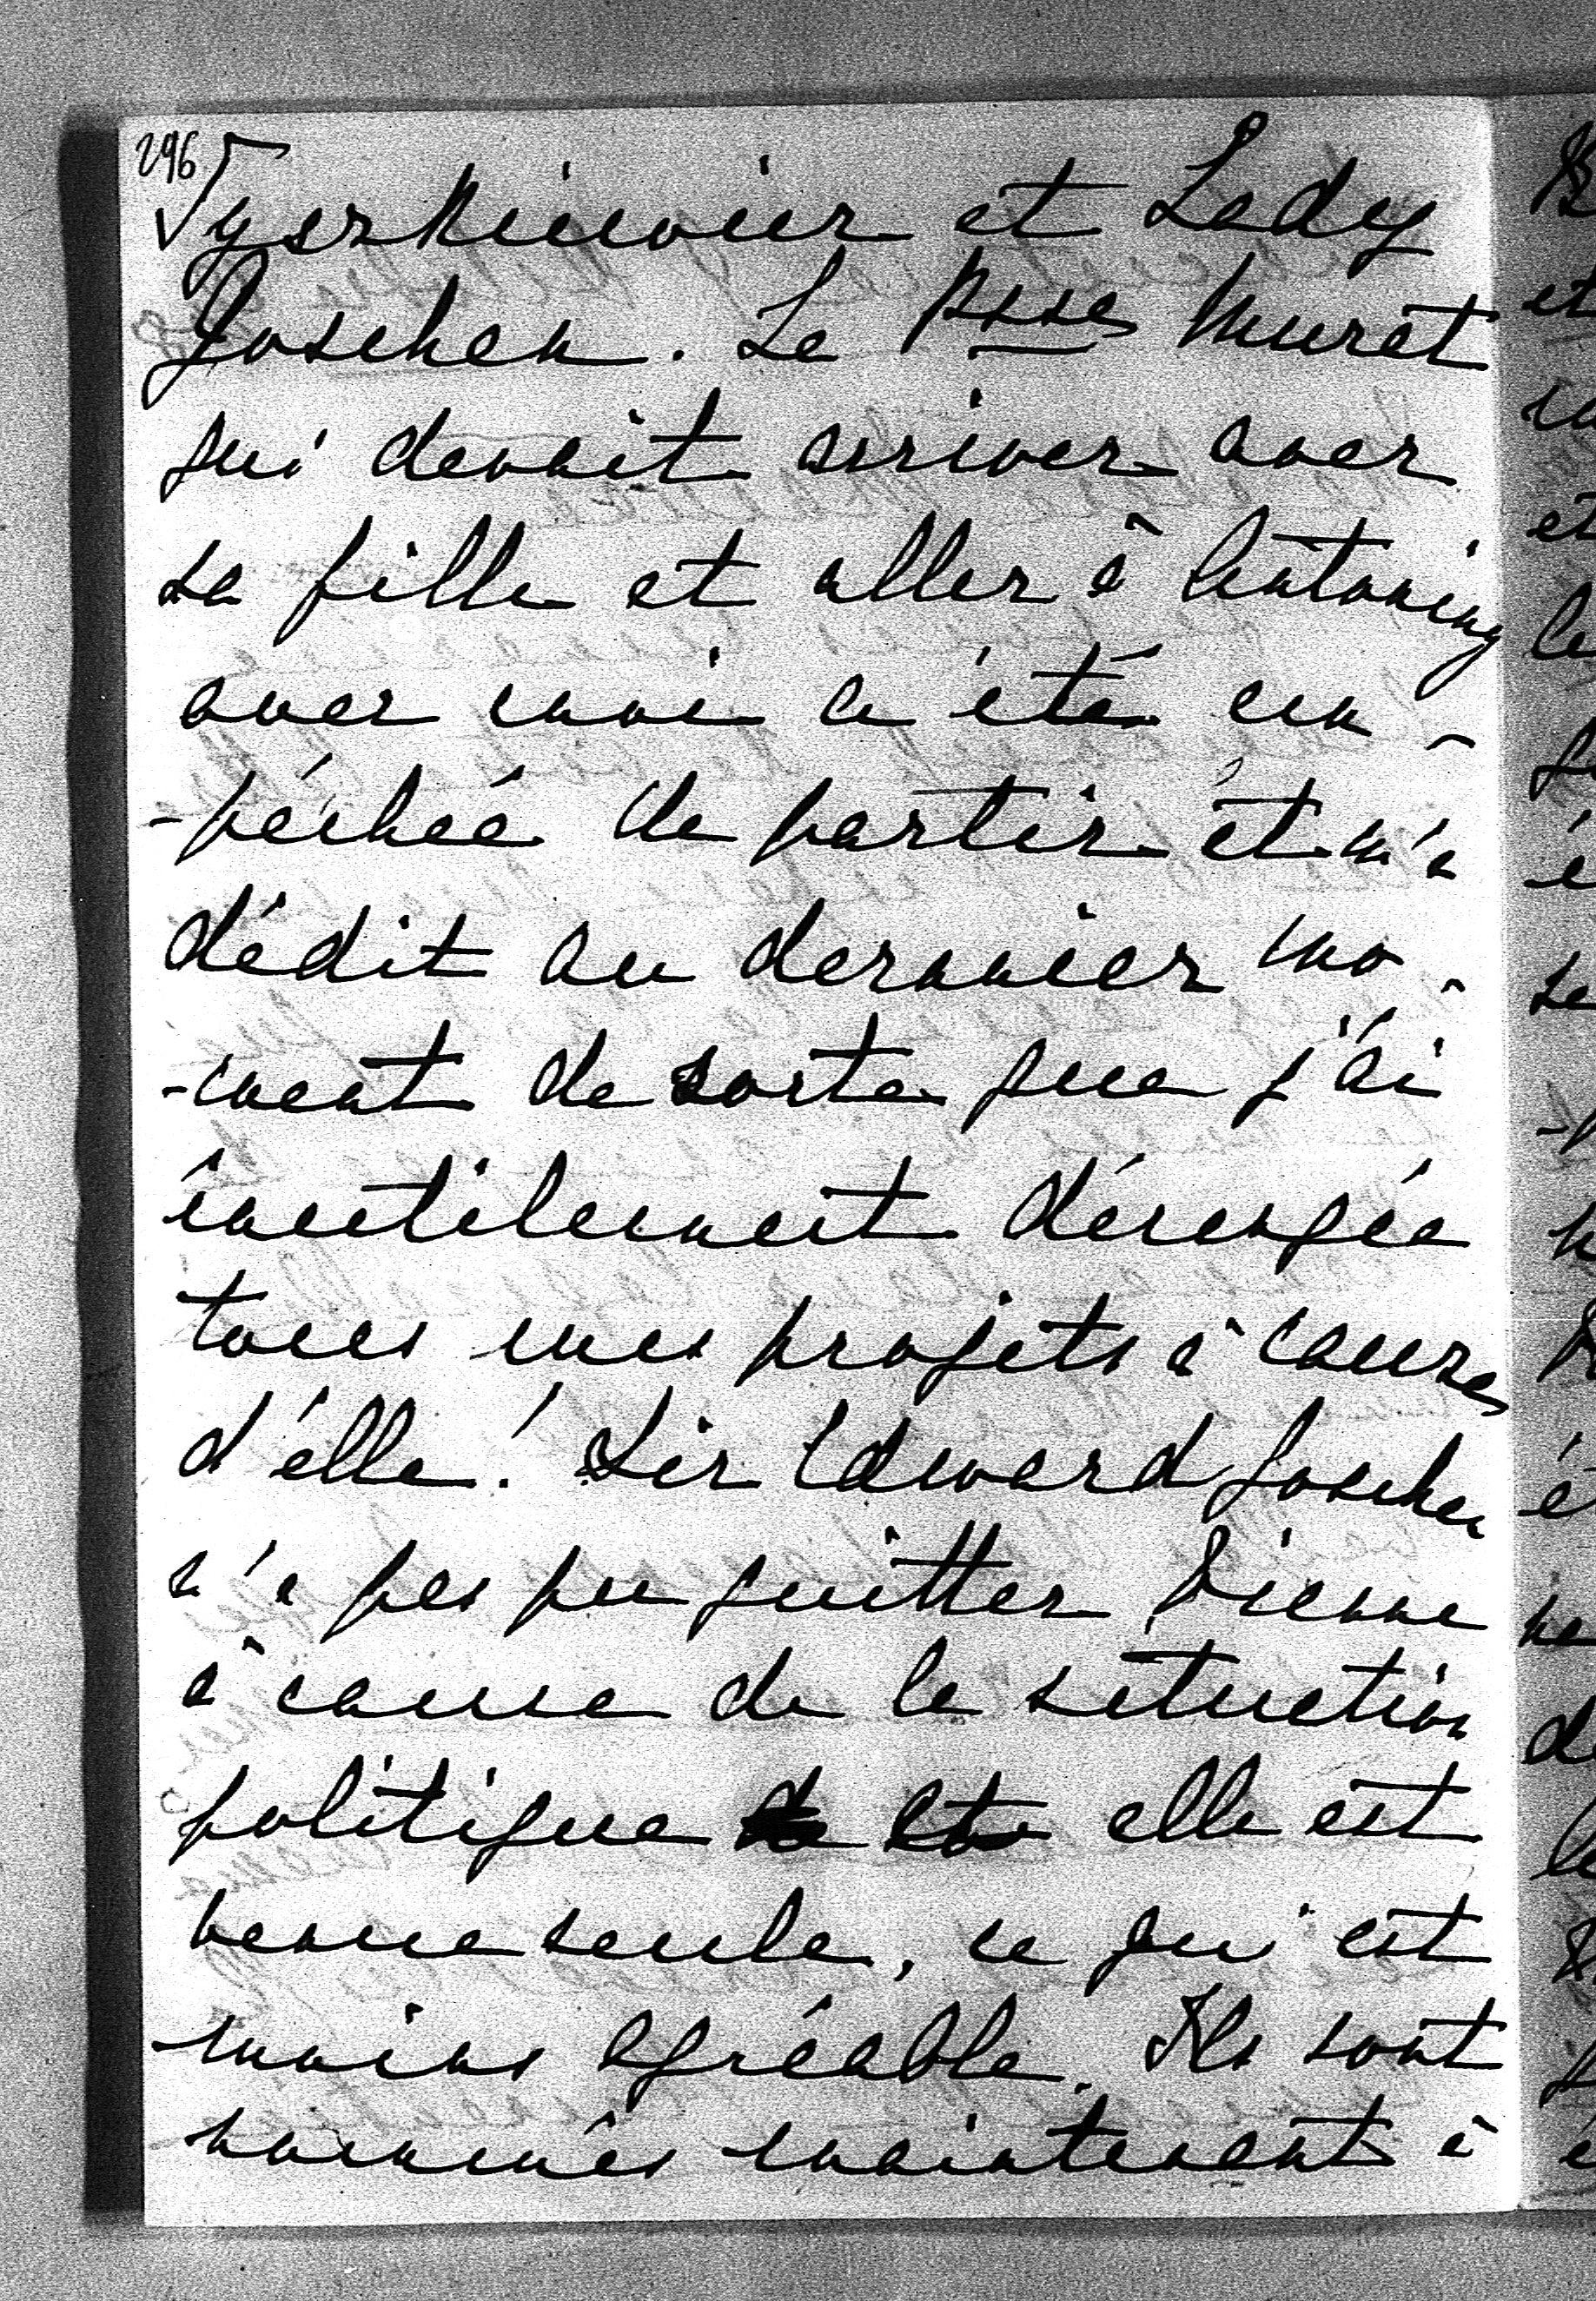 296
Tyszkiewicz et Lady
Goschen. La Psse Murat
qui devait arriver avec
sa fille et aller à Antoniny
avec moi a été em-
-pêchée de partir et m'a
dédit au dernier mo-
-ment de sorte que j'ai
inutilement dérangée
tous mes projets à cause
d'elle! Sir Edward Goschen
n'a pas pu quitter Vienne
à cause de la situation
politique elle est
venue seule, ce qui est
moins agréable. Ils sont
nommés maintenant à